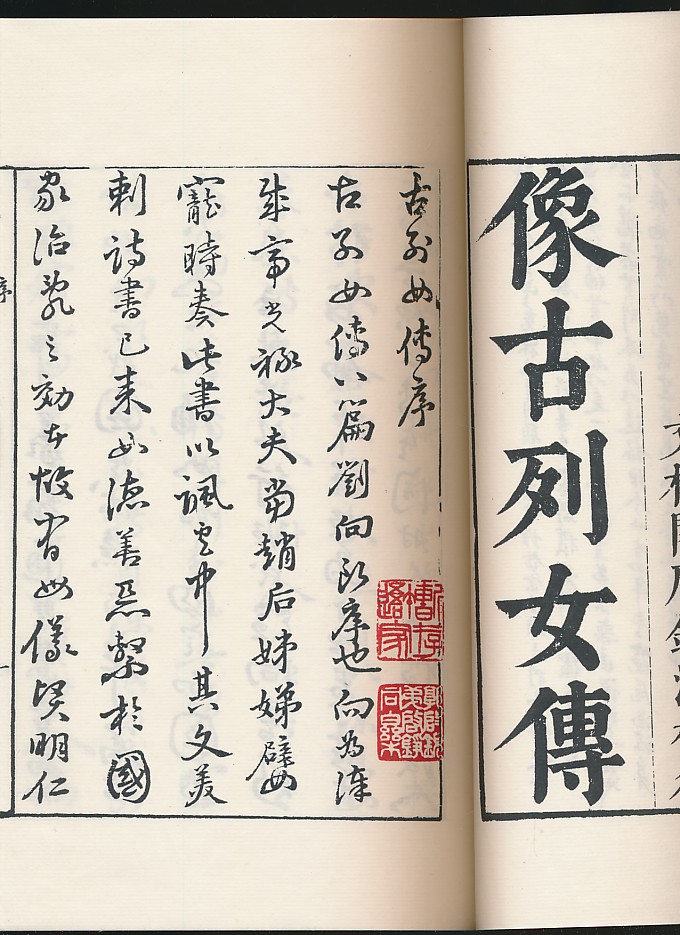 像古列女傳
古列女傳序
古列女傳八篇劉向所序也向為漢
成帝光祿大夫當趙后姊娣嬖
寵時奏此書以諷宮中其文美
刺詩書已來女德善惡繫於國
家治亂之効者故有母儀賢明仁
序
一